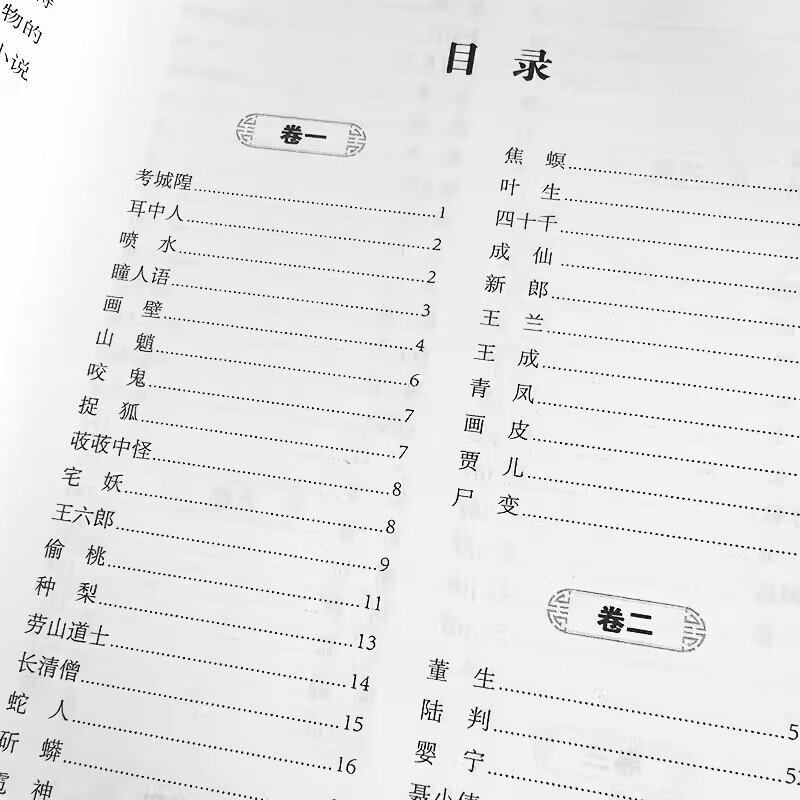 物的
小说
目 录
卷一
考城隍 1
耳中人 2
喷 水 2
瞳人语 3
画 壁 4
山 魈 6
咬 鬼 7
捉 狐 7
荍荍中怪 8
宅 妖 8
王六郎 9
偷 桃 11
种 梨 13
劳山道士 14
长清僧 15
蛇 人 16
斫 蟒
雹 神
焦 螟
叶 生
四十千
成 仙
新 郎
王 兰
王 成
青 凤
画 皮
贾 儿
尸 变
卷二
董 生
陆 判 5
婴 宁 52
聂小倩